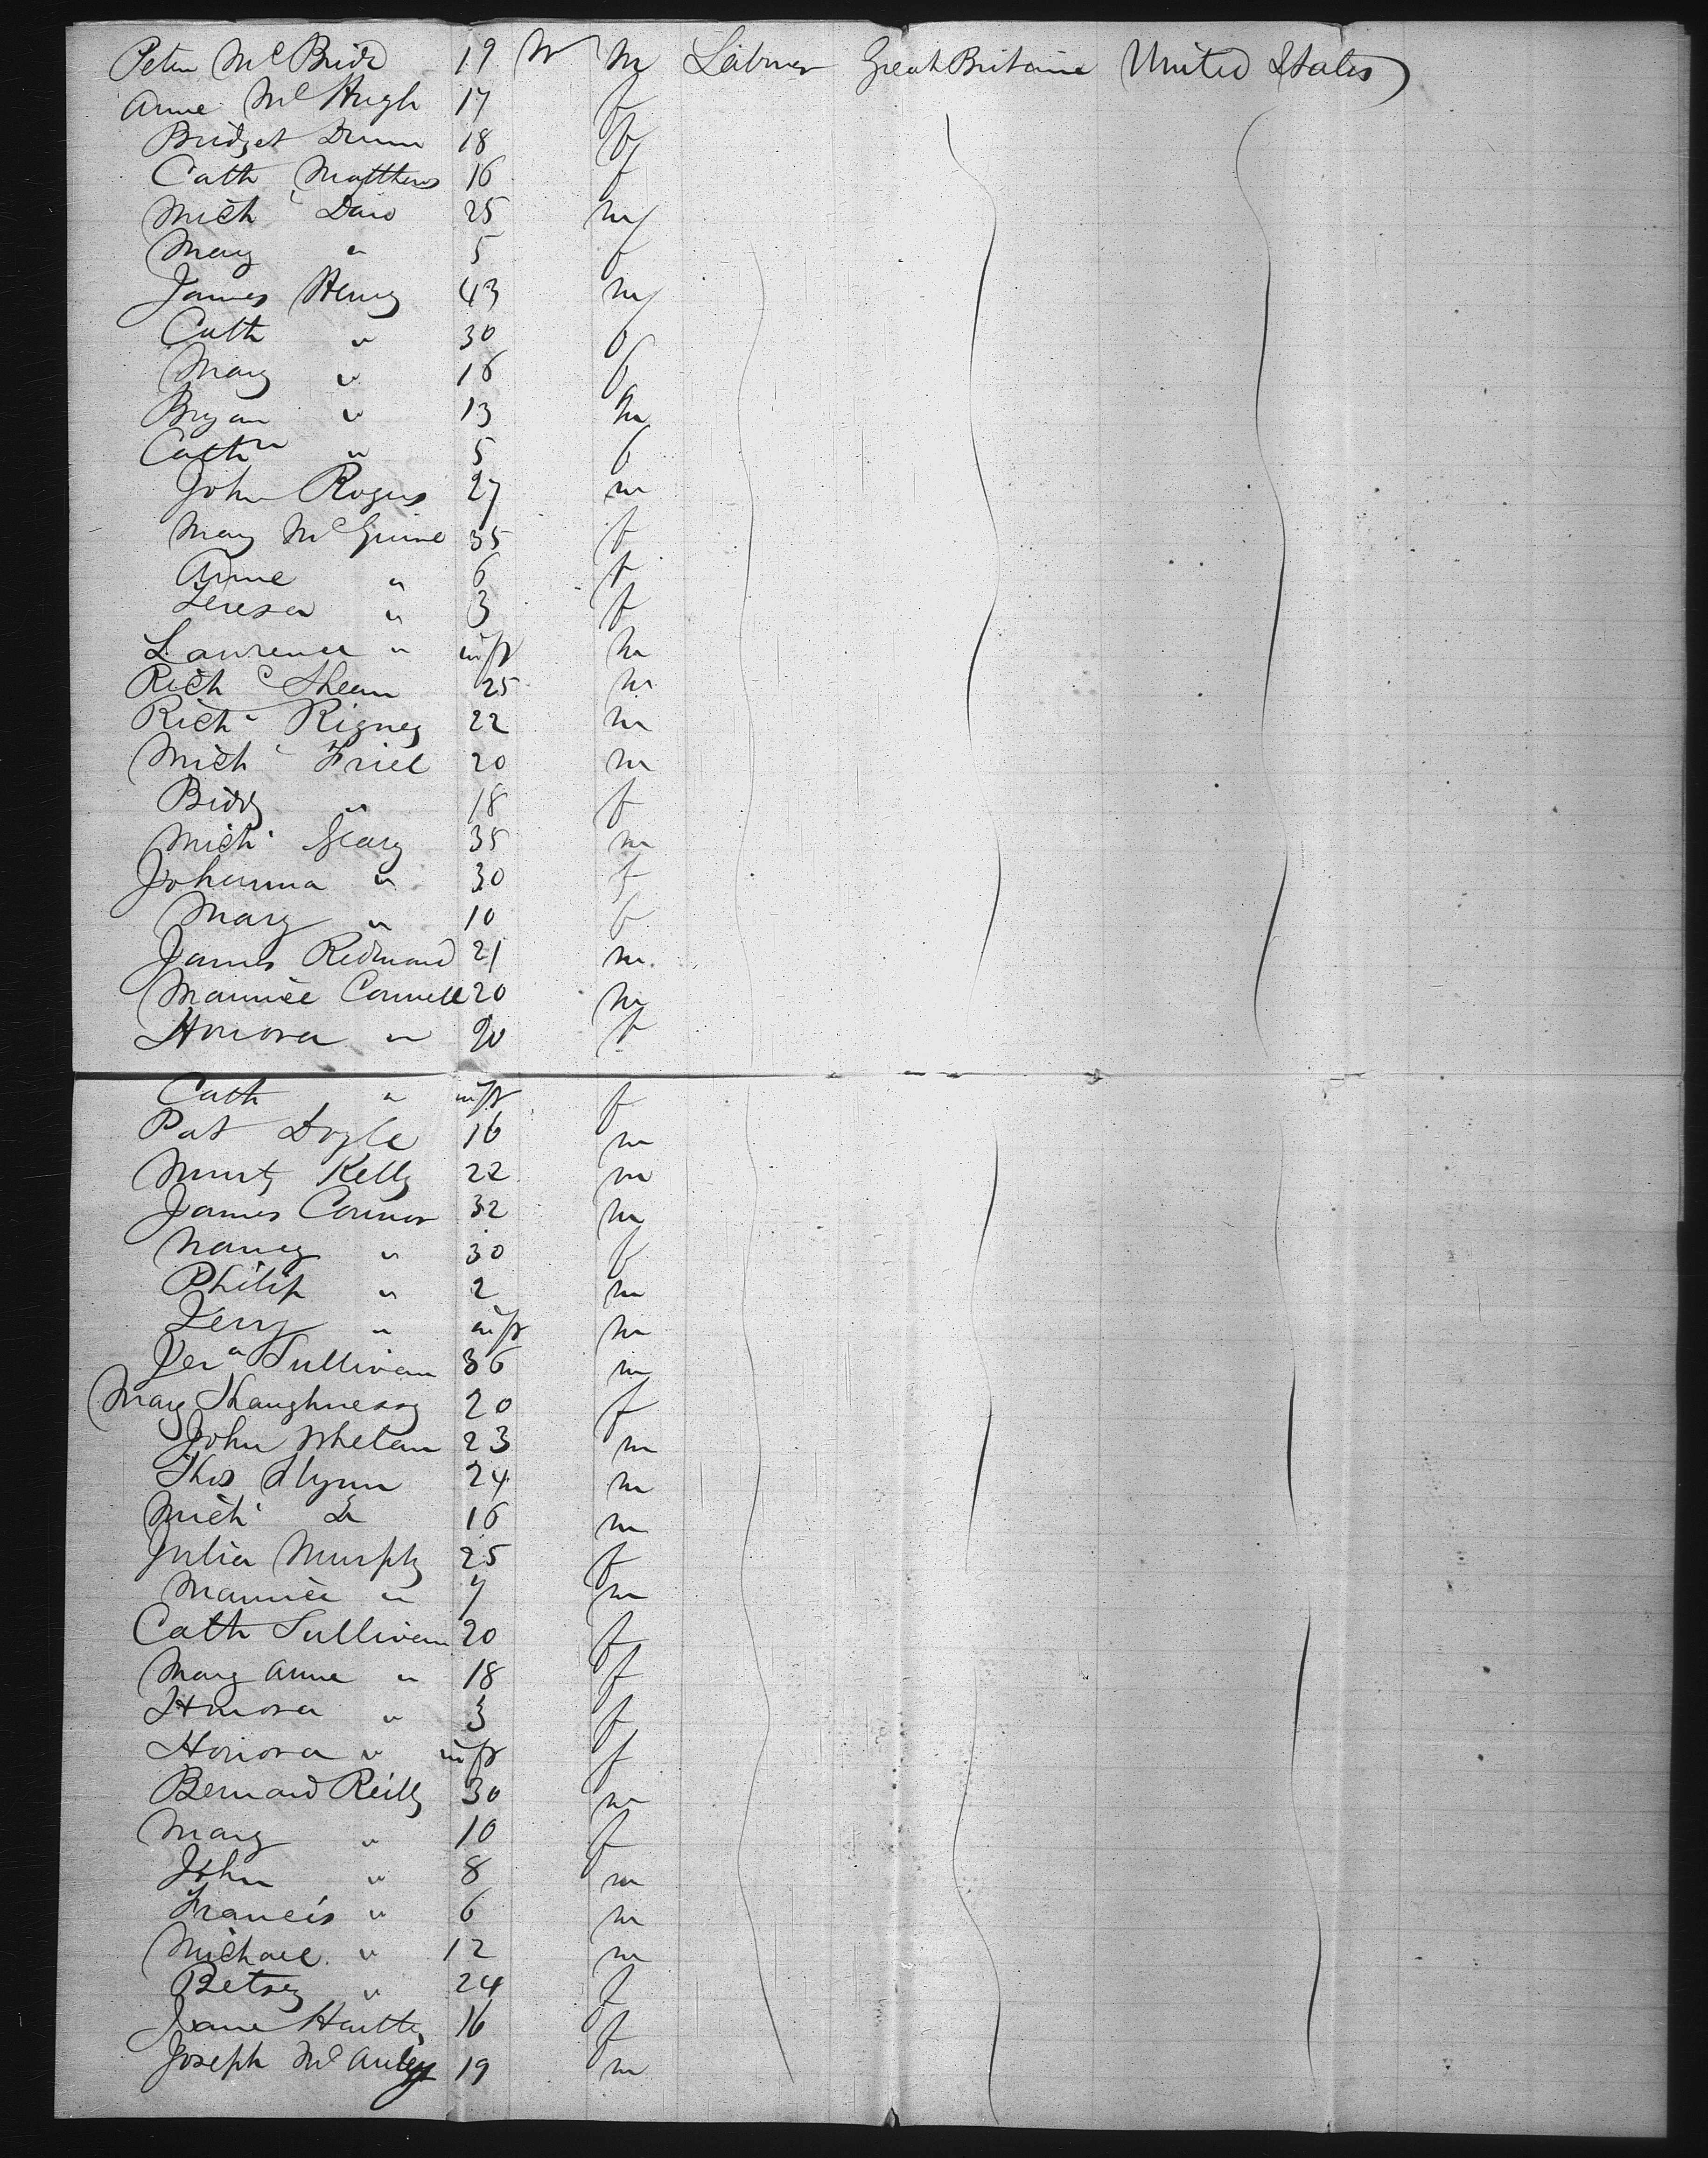 Peter McBride 19 m Labourer Great Britain United States
Anne McHugh 17 f
Bridget Dunn 18 f
Cath Matthews 16 f
Mich 25 m
Mary " 5 f
James Henry 43 m
Cath " 30 f
Mary " 16 f
Bryan " 13 m
Cathn " 5 f
John Rogers 27 m
Mary McGuire 35 f
Anne " 6 f
Teresa " 3 f
Lawrence " inft m
Rich 25 m
Rich Rigney 22 m
Mich Friel 20 m
Biddy " 18 f
Mich Geary 35 m
Johanna " 30 f
Mary " 10 f
James Redmond 21 m
Maurice Connell 20 m
Honora " 20 f
Cath " inft f
Pat Doyle 16 m
Murty Kelly 22 m
James Connor 32 m
Nancy " 30 f
Philip " 2 m
Jerry " inft m
Jera Sullivan 36 m
Mary Shaughnessy 20 f
John Whelan 23 m
Thos Flynn 24 m
Mich Do 16 m
Julia Murphy 25 f
Maurice " 7 m
Cath Sullivan 20 f
Mary Anne " 18 f
Honora " 3 f
Honora " inft f
Bernard Reilly 30 m
Mary " 10 f
John " 8 m
Francis " 6 m
Michael " 12 m
Betsey " 24 f
Jane 16 f
Joseph McAuley 19 m